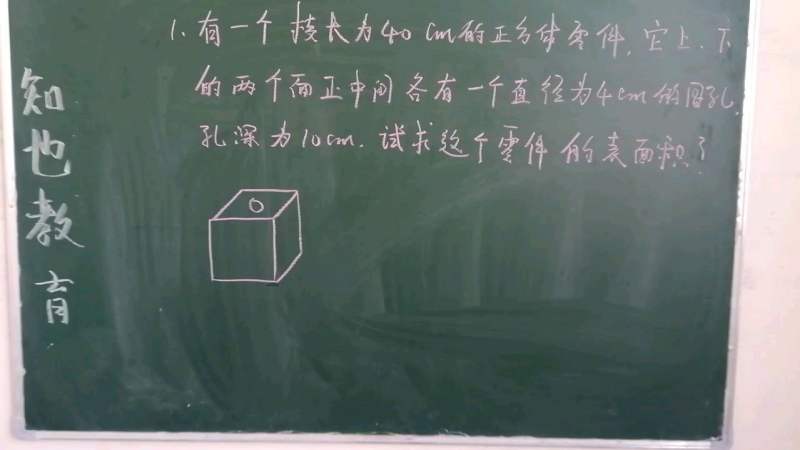 1. 有一个棱长为40cm的正方体零件,它上.下
的两个面正中间各有一个直径为4cm的圆孔,
孔深为10cm.试求这个零件的表面积?
知也教育